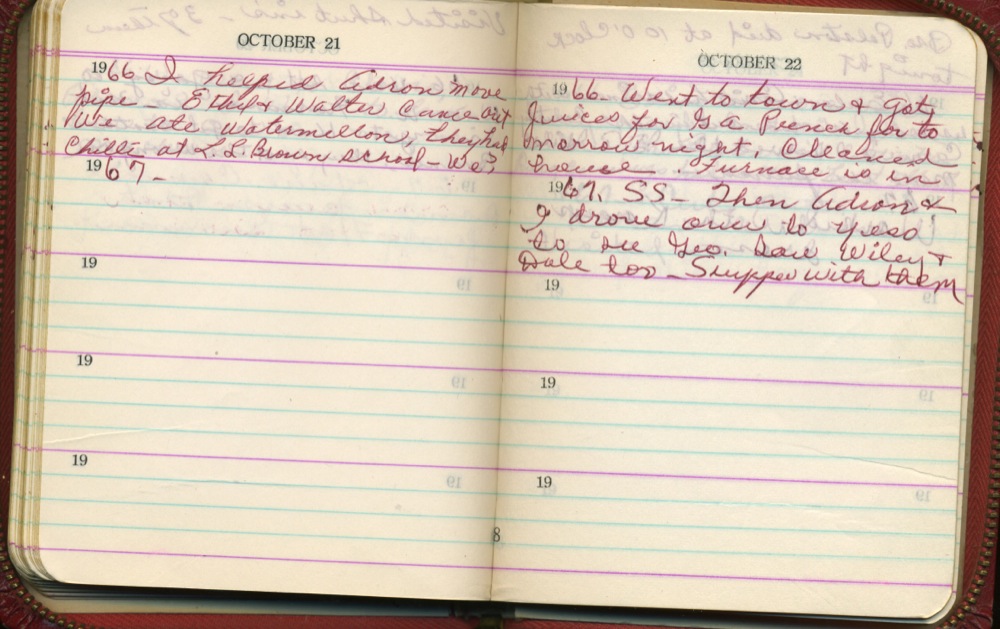 OCTOBER 21
1966 I helped Adron move
pipe - Ethel & Walter Came out
We ate Watermellon, they had
Chilli at L.L. Brown School - We?
1967 -
19
19
19
OCTOBER 22
1966. Went to town & got
Juices for Ga Punch for to
morrow night. Cleaned
house. Furnace is in
1967. SS - Then Adron &
I drove over to Yeso
to see Geo. Saw Wiley &
Dale too - Supper with them
19
19
19
8